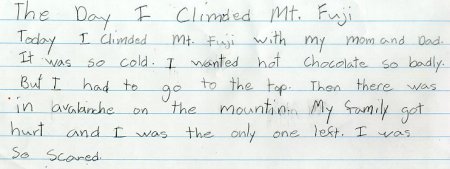 The Day I Climded Mt. Fuji
Today I Climded Mt. Fuji with my mom and Dad.
It was so cold. I wanted hot chocolate so badly.
But I had to go to the top. Then there was
in avalanche on the mountin. My family got
hurt and I was the only one left. I was
So Scared.